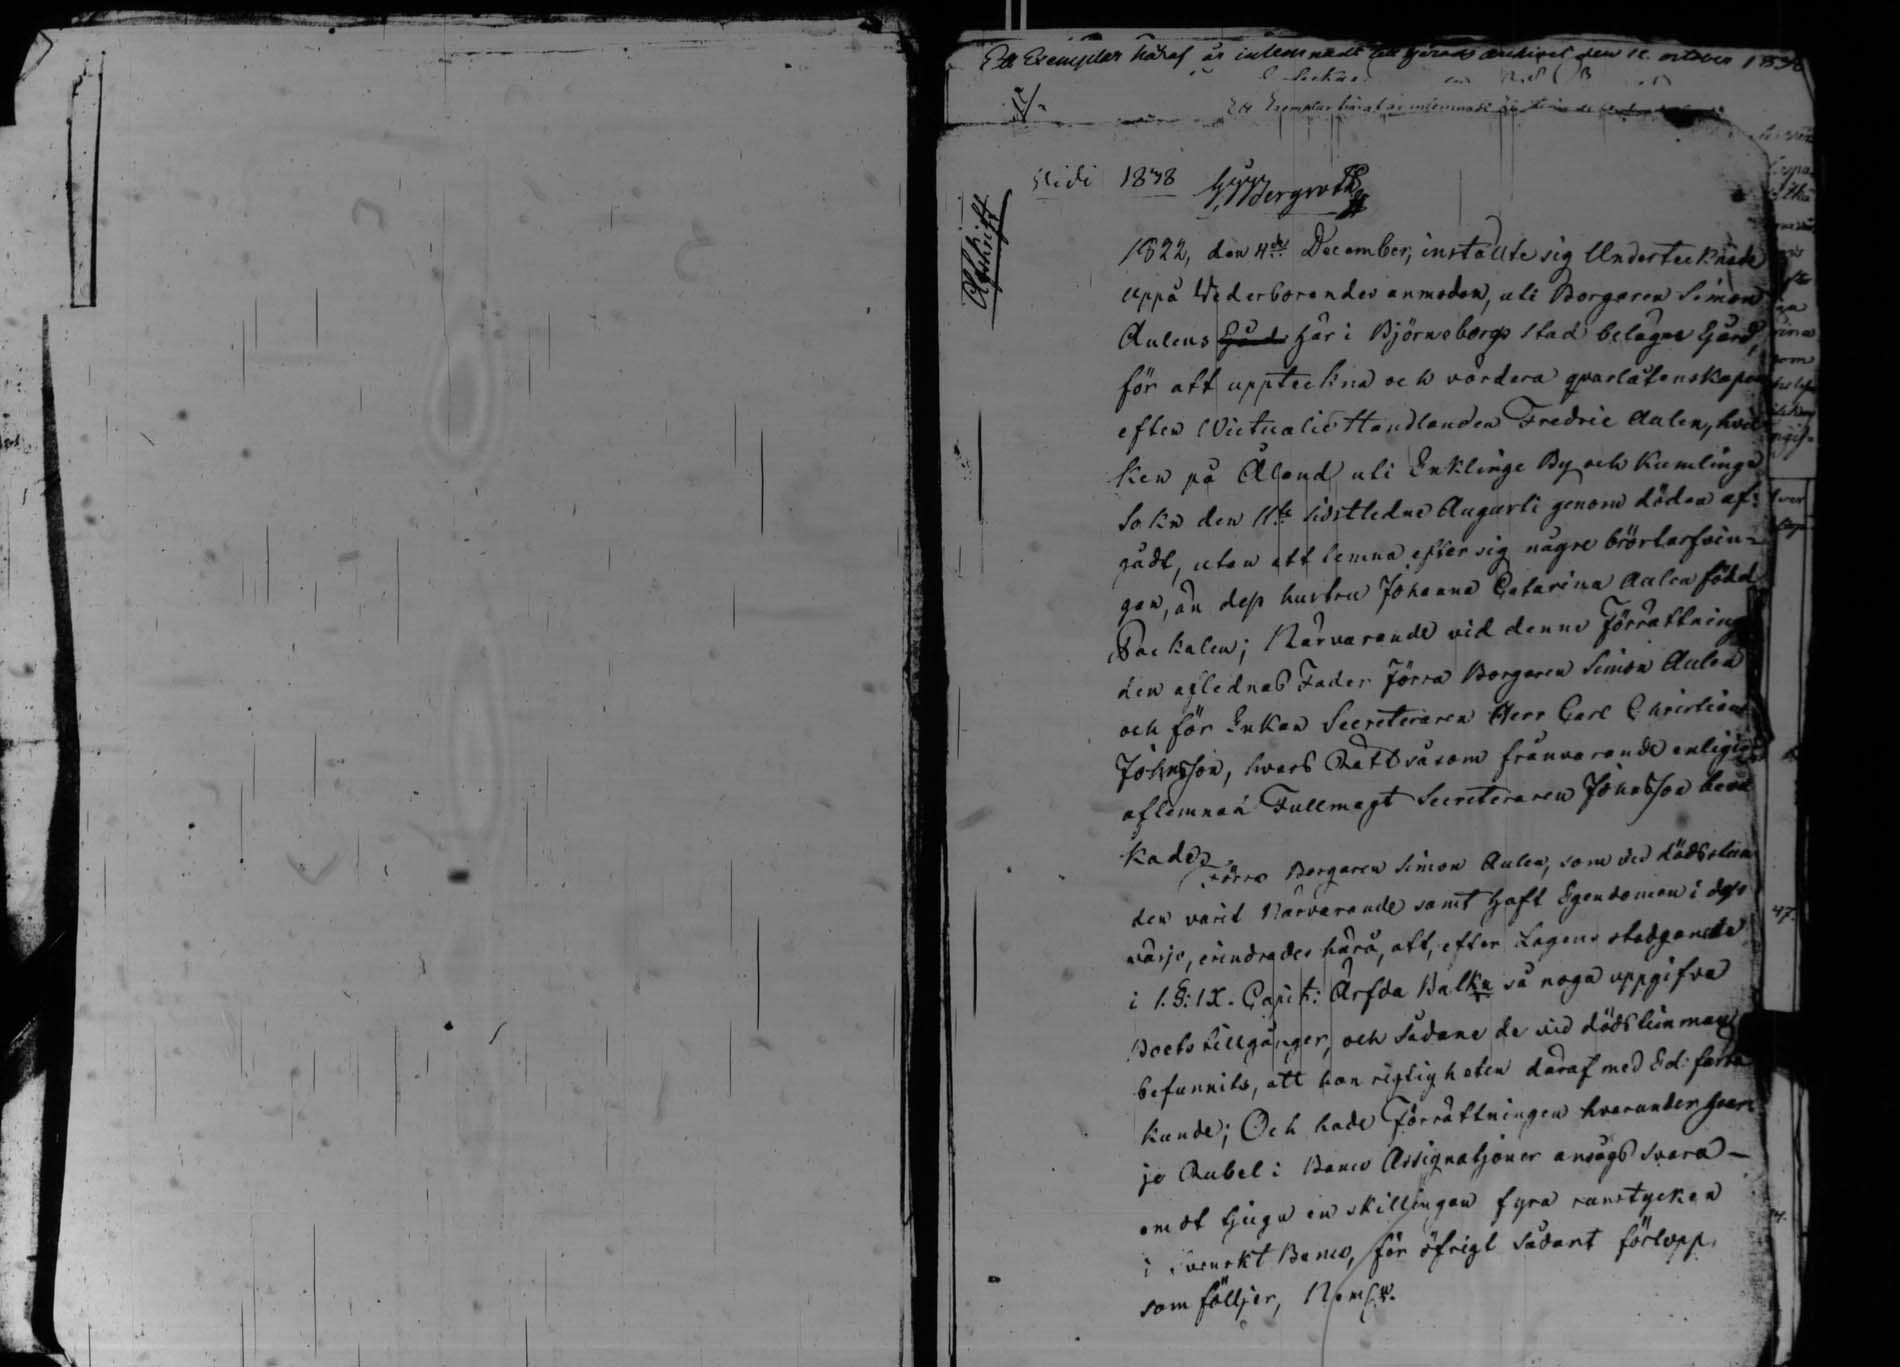 Ett Exemplar häraf är inlemnadt till Härads archivet den 12 october 1838
Ett Exemplar häraf är inlemnadt
Afskrift
Vidi 1838 Bergroth
1822, den 4de December, instälte sig Undertecknade
uppå Wederbörandes anmodan, uti Borgaren Simon
Aulens Gård här i Björneborgs Stad belägne Gård,
för att uppteckna och värdera qvarlåtenskapen
efter Victualie Handlanden Fredric Aulen, hvil
ken på Åland uti Enklinge By och Kumlinge
Sokn den 11te sidstledne Augusti genom döden af-
gådt, utan att lemna efter sig någre bröstarfvin-
gar, än dess hustru Johanna Catarina Aulen född
Backalen; Närvarande vid denne Förrättning
den aflednas Fader Förra Borgaren Simon Aulen
och för Enkan Secreteraren Herr Carl Christian
Johnsson, hvars Rätt såsom frånvarande enligt
aflemnad Fullmagt Secreteraren Johnsson beva
kade.
Förra Borgaren Simon Aulen, som vid dödsstun
den varit Närvarande samt haft Egendomen i dess
värjo, erindrades härå, att, efter Lagens stadgande
i 1. §: IX. Capit: Ärfda Balkn så noga uppgifva
Boets tillgånger, och sådane de vid dödstimman
befunnits, att han rigtigheten däraf med Ed fästa
kunde; Och hade Förrättningen hvarunder hvar
je Rubel i Banco Assignatjoner ansågs svara
emot tjugu en skillingar fyra runstycken
i svenskt Banco, för öfrigt sådant förlopp
som följer, Neml.
47.